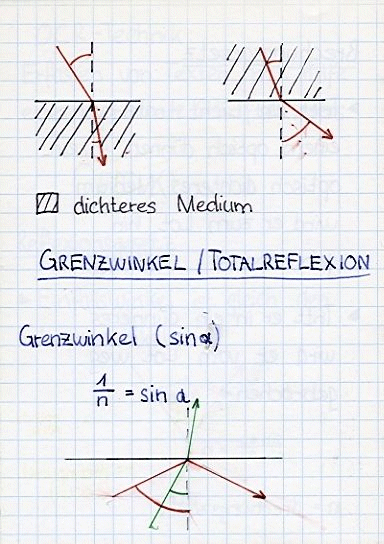 dichteres Medium
GRENZWINKEL / TOTALREFLEXION
Grenzwinkel (sin α)
1/n = sin α